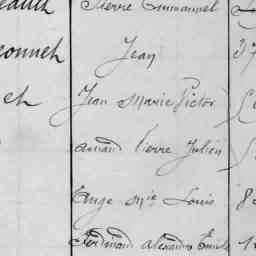 Pierre Emmanuel
onneh Jean 37
eh Jean Marie Victor
amand Pierre Julien
Ange Mie Louis 8
Ferdinand Alexandre Emile 1